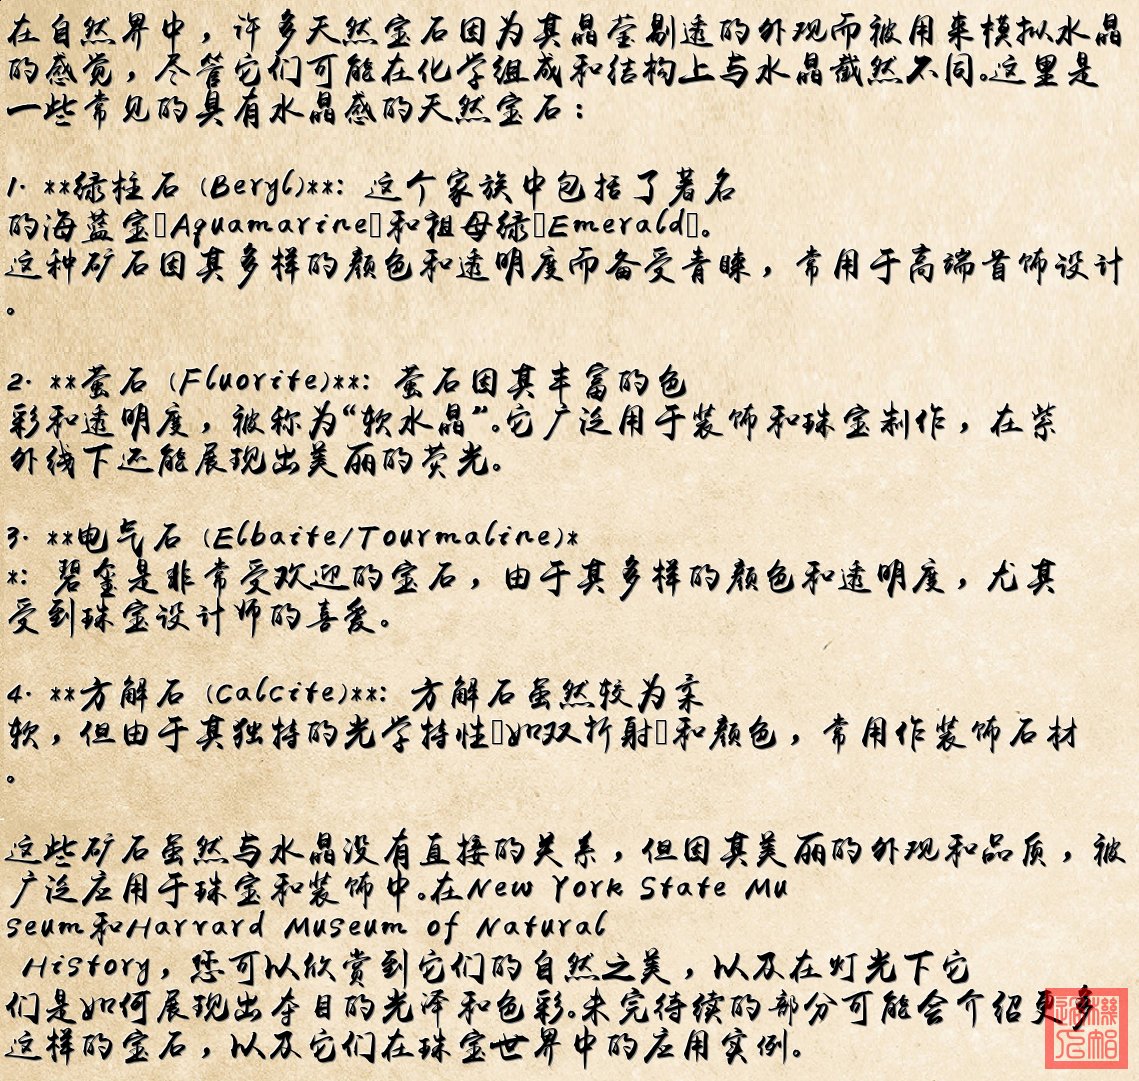 在自然界中，许多天然宝石因为其晶莹剔透的外观而被用来模拟水晶
的感觉，尽管它们可能在化学组成和结构上与水晶截然不同。这里是
一些常见的具有水晶感的天然宝石：
1. **绿柱石 (Beryl)**: 这个家族中包括了著名
的海蓝宝（Aquamarine）和祖母绿（Emerald）。
这种矿石因其多样的颜色和透明度而备受青睐，常用于高端首饰设计
。
2. **萤石 (Fluorite)**: 萤石因其丰富的色
彩和透明度，被称为“软水晶”。它广泛用于装饰和珠宝制作，在紫
外线下还能展现出美丽的荧光。
3. **电气石 (Elbaite/Tourmaline)*
*: 碧玺是非常受欢迎的宝石，由于其多样的颜色和透明度，尤其
受到珠宝设计师的喜爱。
4. **方解石 (Calcite)**: 方解石虽然较为柔
软，但由于其独特的光学特性（如双折射）和颜色，常用作装饰石材
。
这些矿石虽然与水晶没有直接的关系，但因其美丽的外观和品质，被
广泛应用于珠宝和装饰中。在New York State Mu
seum和Harvard Museum of Natural
History，您可以欣赏到它们的自然之美，以及在灯光下它
们是如何展现出夺目的光泽和色彩。未完待续的部分可能会介绍更多
这样的宝石，以及它们在珠宝世界中的应用实例。